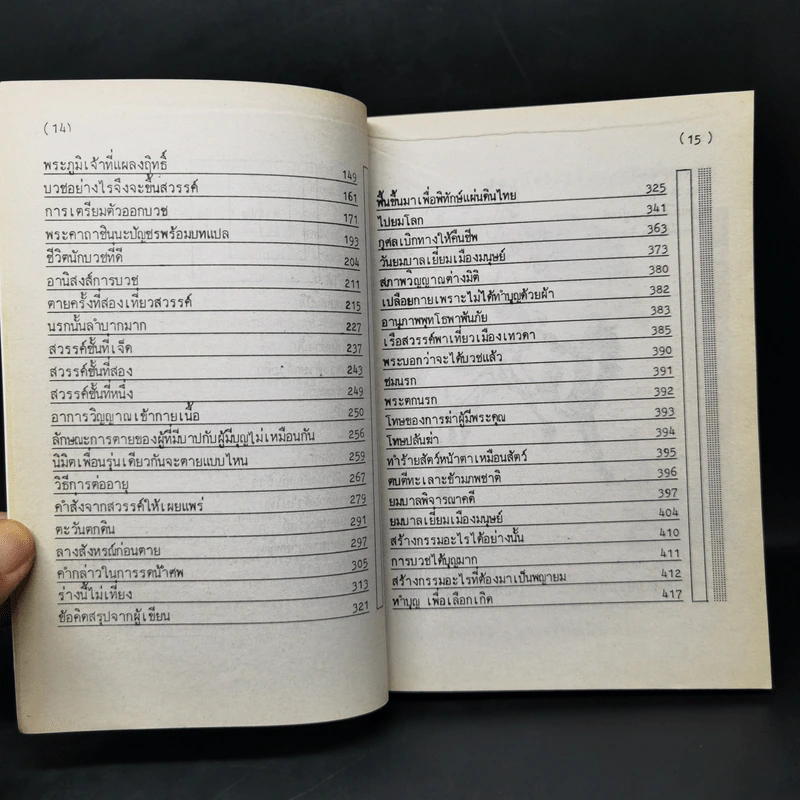 (14)
พระภูมิเจ้าที่แผลงฤทธิ์ 149
บวชอย่างไรจึงจะขึ้นสวรรค์ 161
การเตรียมตัวออกบวช 171
พระคาถาชินนะปัญชรพร้อมบทแปล 193
ชีวิตนักบวชที่ดี 204
อานิสงส์การบวช 211
ตายครั้งที่สองเที่ยวสวรรค์ 215
นรกนั้นลำบากมาก 227
สวรรค์ชั้นที่เจ็ด 237
สวรรค์ชั้นที่สอง 243
สวรรค์ชั้นที่หนึ่ง 249
อาการวิญญาณเข้ากายเนื้อ 250
ลักษณะการตายของผู้ที่มีบาปกับผู้มีบุญไม่เหมือนกัน 256
นิมิตเพื่อนรุ่นเดียวกันจะตายแบบไหน 259
วิธีการต่ออายุ 267
คำสั่งจากสวรรค์ให้เผยแพร่ 279
ตะวันตกดิน 291
ลางสังหรณ์ก่อนตาย 297
คำกล่าวในการรดน้ำศพ 305
ร่างนี้ไม่เที่ยง 313
ข้อคิดสรุปจากผู้เขียน 321
(15)
ฟื้นขึ้นมาเพื่อพิทักษ์แผ่นดินไทย 325
ไปยมโลก 341
กุศลเบิกทางให้คืนชีพ 363
วันยมบาลเยี่ยมเมืองมนุษย์ 373
สภาพวิญญาณต่างมิติ 380
เปลือยกายเพราะไม่ได้ทำบุญด้วยผ้า 382
อานุภาพพุทโธพาพ้นภัย 383
เรือสวรรค์พาเที่ยวเมืองเทวดา 385
พระบอกว่าจะได้บวชแล้ว 390
ชมนรก 391
พระตกนรก 392
โทษของการฆ่าผู้มีพระคุณ 393
โทษปล้นฆ่า 394
ทำร้ายสัตว์หน้าตาเหมือนสัตว์ 395
คบตีทะเลาะข้ามภพชาติ 396
ยมบาลพิจารณาคดี 397
ยมบาลเยี่ยมเมืองมนุษย์ 404
สร้างกรรมอะไรได้อย่างนั้น 410
การบวชได้บุญมาก 411
สร้างกรรมอะไรที่ต้องมาเป็นพญายม 412
ทำบุญ เพื่อเลือกเกิด 417